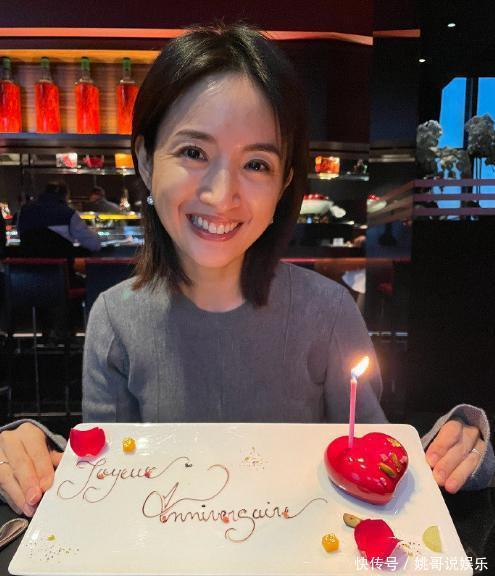 Joyeux
Anniversaire
快传号 / 姚哥说娱乐